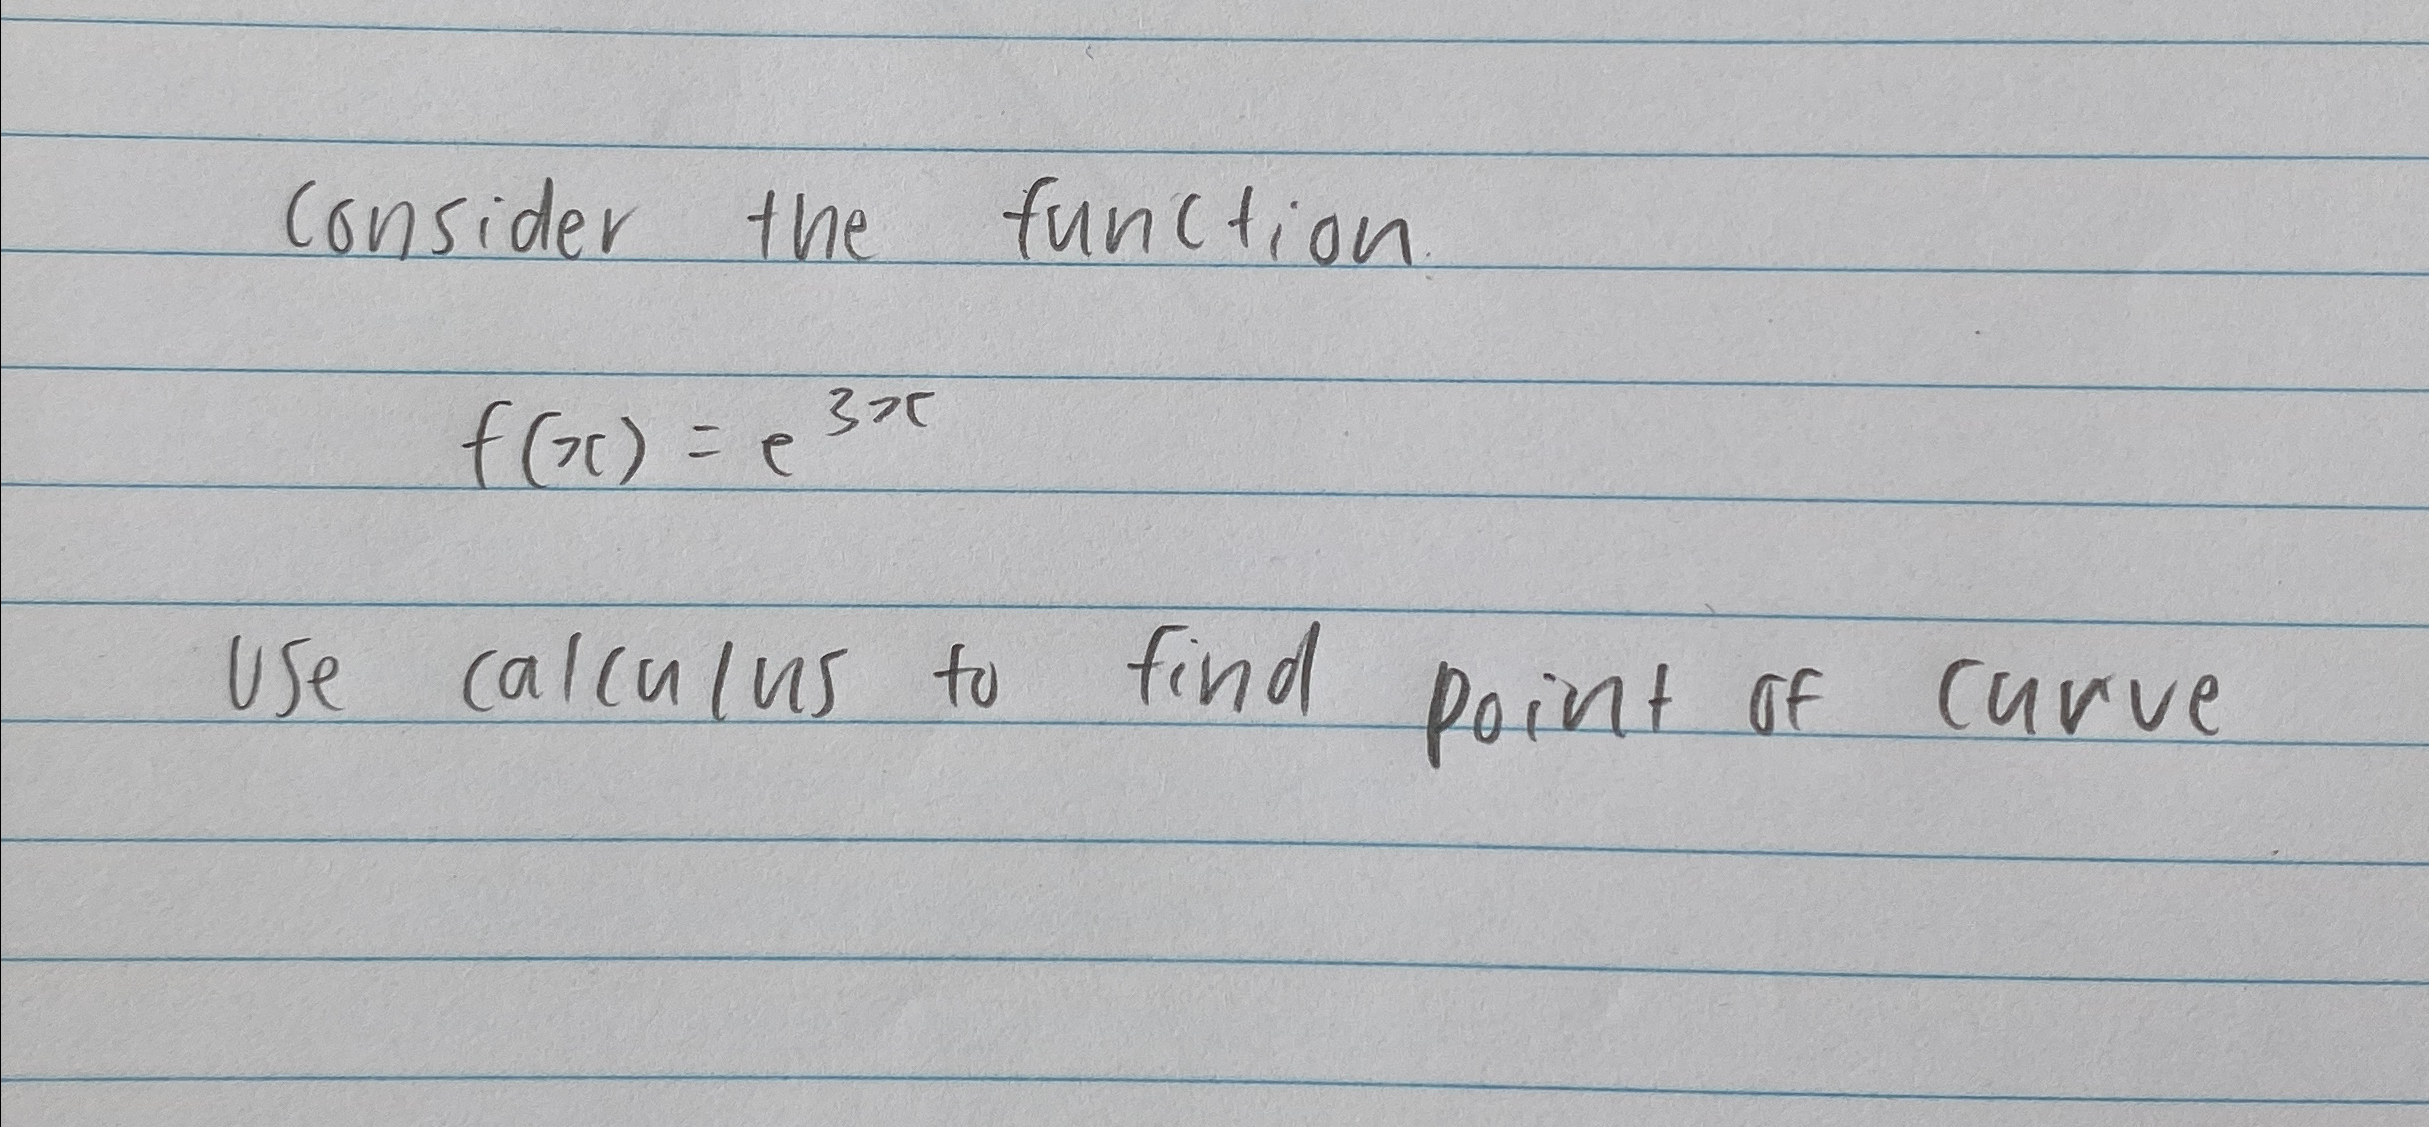 Consider the function.
f(x) = e^{3x}
Use calculus to find point of curve